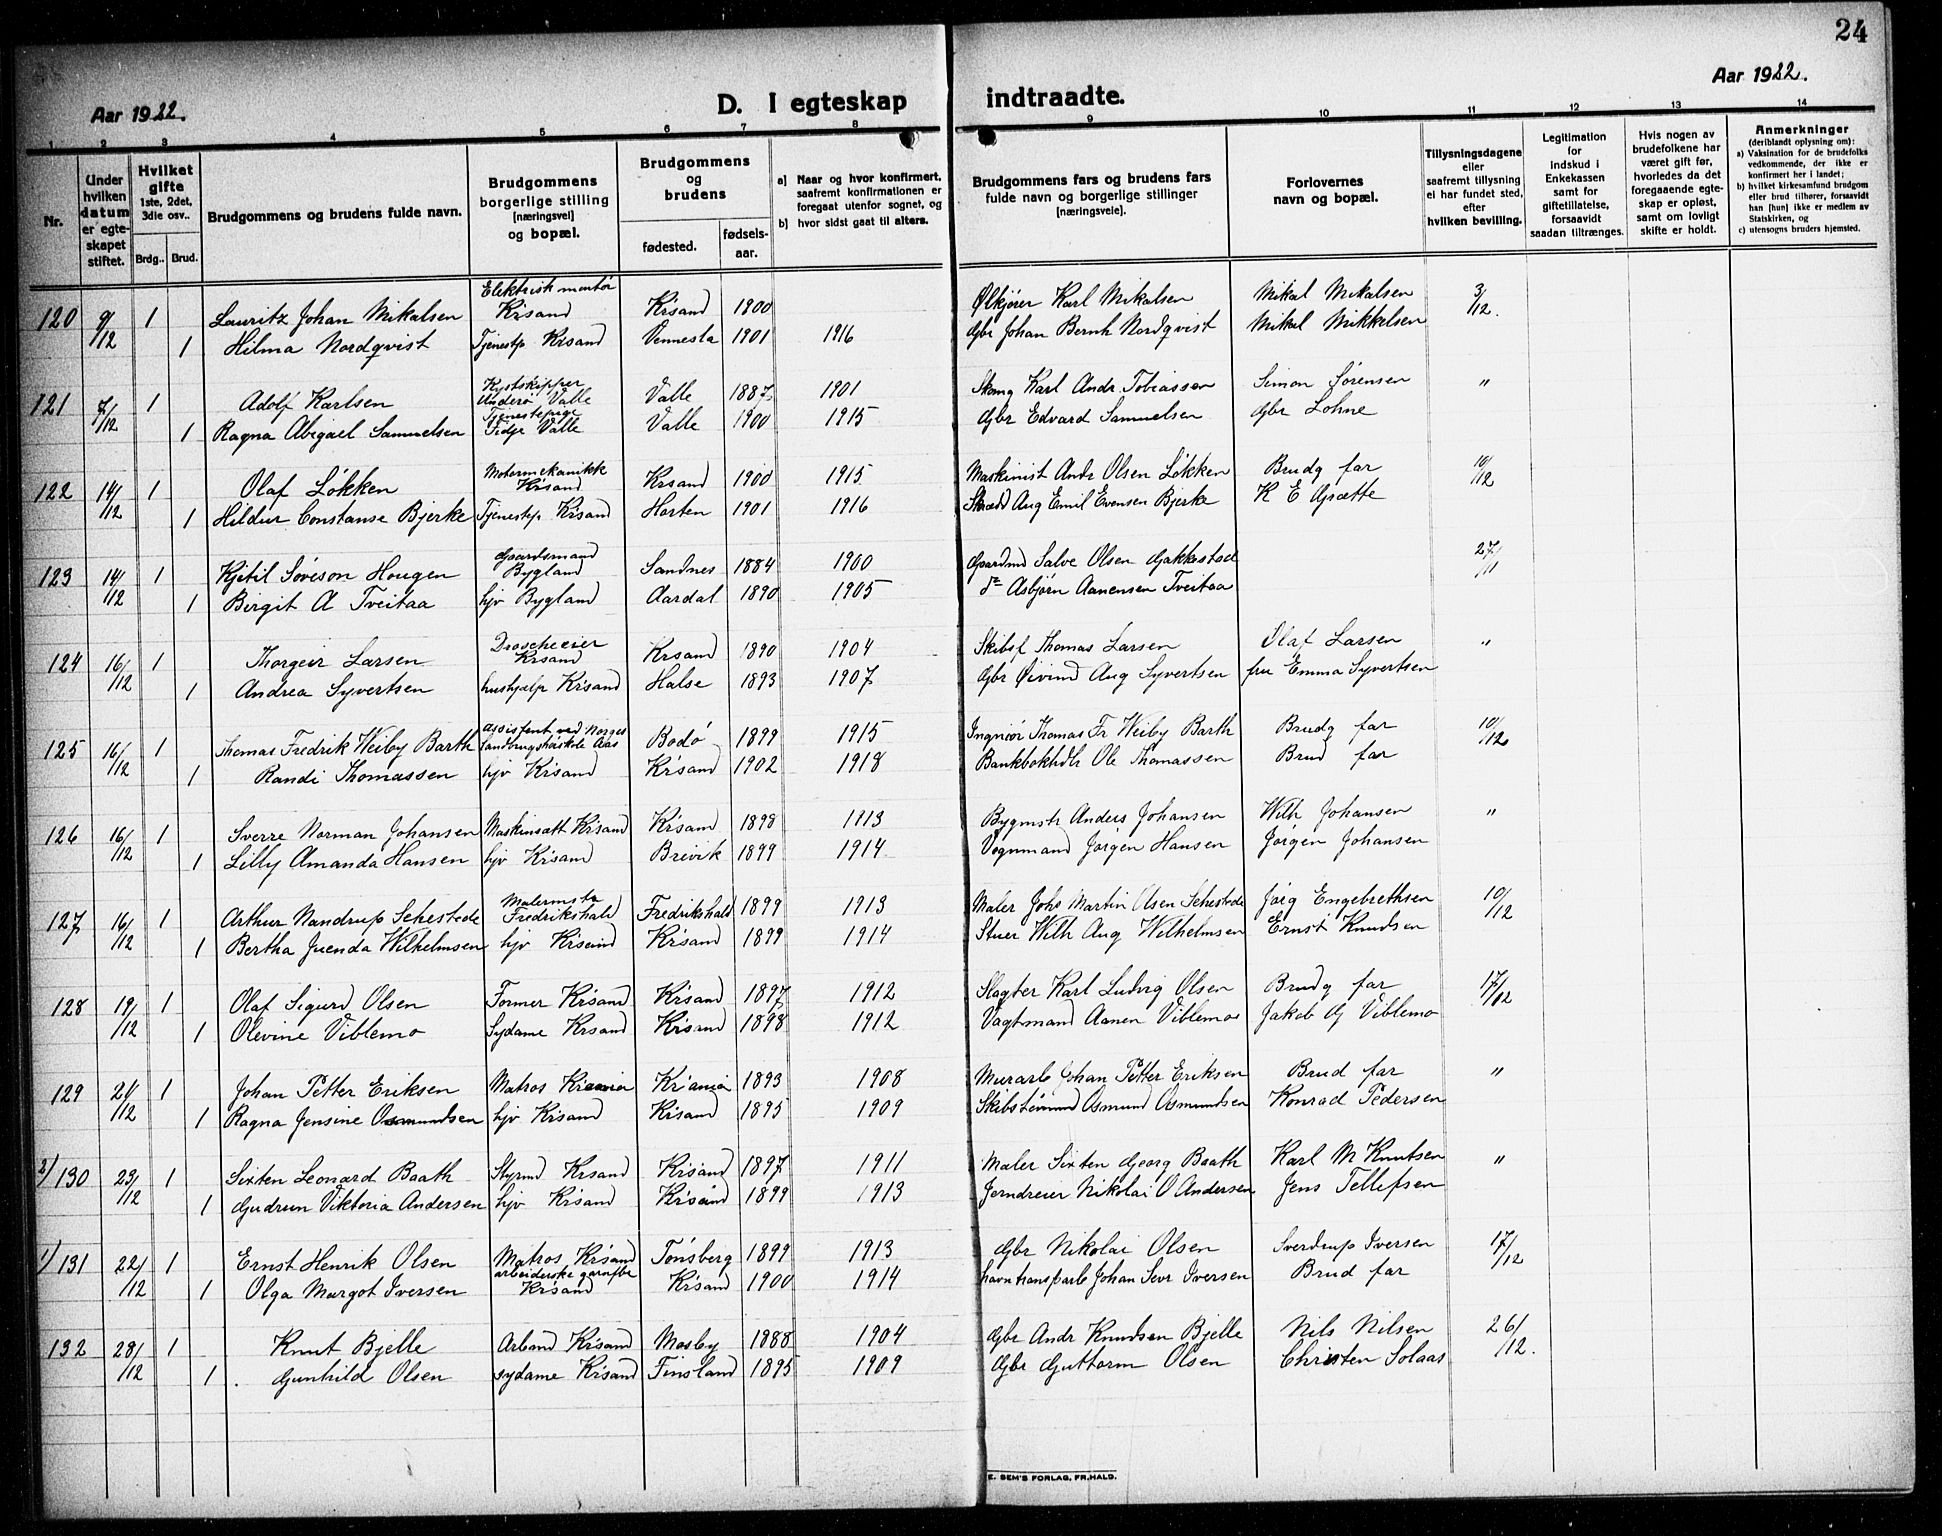 24
Aar 1922.
D. I egteskap
indtraadte.
Aar 1922.
1 2 3 4 5 6 7 8 9 10 11 12 13 14
Nr.
Under hvilken datum er egteskapet stiftet.
Hvilket gifte 1ste, 2det, 3die osv..
Brdg.. Brud.
Brudgommens og brudens fulde navn.
Brudgommens borgerlige stilling [næringsvei] og bopæl.
Brudgommens og brudens
fødested.
fødselsaar.
a) Naar og hvor konfirmert, saafremt konfirmationen er foregaat utenfor sognet, og
b) hvor sidst gaat til alters.
Brudgommens fars og brudens fars fulde navn og borgerlige stillinger [næringsveie].
Forlovernes navn og bopæl.
Tillysningsdagene eller saafremt tillysning ei har fundet sted, efter hvilken bevilling.
Legitimation for indskud i Enkekassen samt for giftetillatelse, forsaavidt saadan tiltrænges.
Hvis nogen av brudefolkene har været gift før, hvorledes da det foregaaende egteskap er opløst, samt om lovligt skifte er holdt.
Anmerkninger (deriblandt oplysning om):
a) Vaksination for de brudefolks vedkommende, der ikke er konfirmert her i landet;
b) hvilket kirkesamfund brudgom eller brud tilhører, forsaavidt han [hun] ikke er medlem av Statskirken, og
c) utensogns bruders hjemsted.
120 9/12 1 Lauritz Johan Mikalsen Elektrisk montör Krsand Krsand 1900 Ölkjörer Karl Mikalsen Mikal Mikalsen 3/12.
1 Hilma Nordqvist Tjenestp Krsand Vennesla 1901 1916 Gbr Johan Bernh Nordqvist Mikal Mikkelsen
121 7/12 1 Adolf Karlsen Kystskipper Underö Valle Valle 1887 1901 Skomg Karl Andr Tobiassen Simon Sørensen "
1 Ragna Abegael Samuelsen Tjenestepige Fidje Valle Valle 1900 1915 Gbr Edvard Samuelsen Gbr Lohne
122 14/12 1 Olaf Løkken Motormekanikk Krsand Krsand 1900 1915 Maskinist Andr Olsen Løkken Brudg far 10/12
1 Hildur Constanse Bjerke Tjenestp Krsand Horten 1901 1916 Skrædd Aug Emil Evensen Bjerke K E Grætte
123 14/12 1 Kjetil Söveson Hougen Gaardsmand Bygland Sandnes 1884 1900 Gaardmd Salve Olsen Gakkestad 27/11
1 Birgit A Tveitaa hjv Bygland Aardal 1890 1905 do Asbjørn Aanensen Tveitaa
124 16/12 1 Thorgeir Larsen Droscheeier Krsand Krsand 1890 1904 Skibsf Thomas Larsen Olaf Larsen "
1 Andrea Syvertsen hushjælp Krsand Halse 1893 1907 Gbr Øivind Aug Syvertsen fru Emma Syvertsen
125 16/12 1 Thomas Fredrik Weiby Barth Assistent ved Norges Landbrugshöiskole Aas Bodö 1899 1915 Ingniör Thomas Fr Weiby Barth Brudg far 10/12
1 Randi Thomassen hjv Krsand Krsand 1902 1918 Bankbokhdlr Ole Thomassen Brud far
126 16/12 1 Sverre Norman Johansen Maskinsætt Krsand Krsand 1898 1913 Bygmstr Anders Johansen Wilh Johansen "
1 Lilly Amanda Hansen hjv Krsand Brevik 1899 1914 Vognmand Jørgen Hansen Jørgen Johansen
127 16/12 1 Arthur Nandrup Sehestede Malermstr Fredrikshald Fredrikshald 1899 1913 Maler Johs Martin Olsen Sehestede Jørg Engebrethsen 10/12
1 Bertha Juenda Wilhelmsen hjv Krsand Krsand 1899 1914 Stuer Wilh Aug Wilhelmsen Ernst Knudsen
128 19/12 1 Olaf Sigurd Olsen Former Krsand Krsand 1897 1912 Slagter Karl Ludvig Olsen Brudg far 17/12
1 Olevine Viblemo Sydame Krsand Krsand 1898 1912 Vagtmand Aanen Viblemo Jakob G Viblemo
129 21/12 1 Johan Petter Eriksen Matros Krania Krania 1893 1908 Murarb Johan Petter Eriksen Brud far "
1 Ragna Jensine Osmundsen hjv Krsand Krsand 1895 1909 Skibstömmd Osmund Osmundsen Konrad Pedersen
2/130 23/12 1 Sixten Leonard Baath Styrmd Krsand Krsand 1897 1911 Maler Sixten Georg Baath Karl M Knutsen "
1 Gudrun Viktoria Andersen hjv Krsand Krsand 1899 1913 Jerndreier Nikolai O Andersen Jens Tellefsen
1/131 22/12 1 Ernst Henrik Olsen Matros Krsand Tönsberg 1899 1913 Gbr Nikolai Olsen Sverdrup Iversen 17/12
1 Olga Margot Iversen arbeiderske garnfbr Krsand Krsand 1900 1914 havntransparb Johan Sevr Iversen Brud far
132 28/12 1 Knut Bjelle Arbmd Krsand Mosby 1888 1904 Gbr Andr Knudsen Bjelle Nils Nilsen 26/12.
1 Gunhild Olsen sydame Krsand Finsland 1895 1909 Gbr Guttorm Olsen Christen Solaas
E. SEM'S FORLAG, FR.HALD.